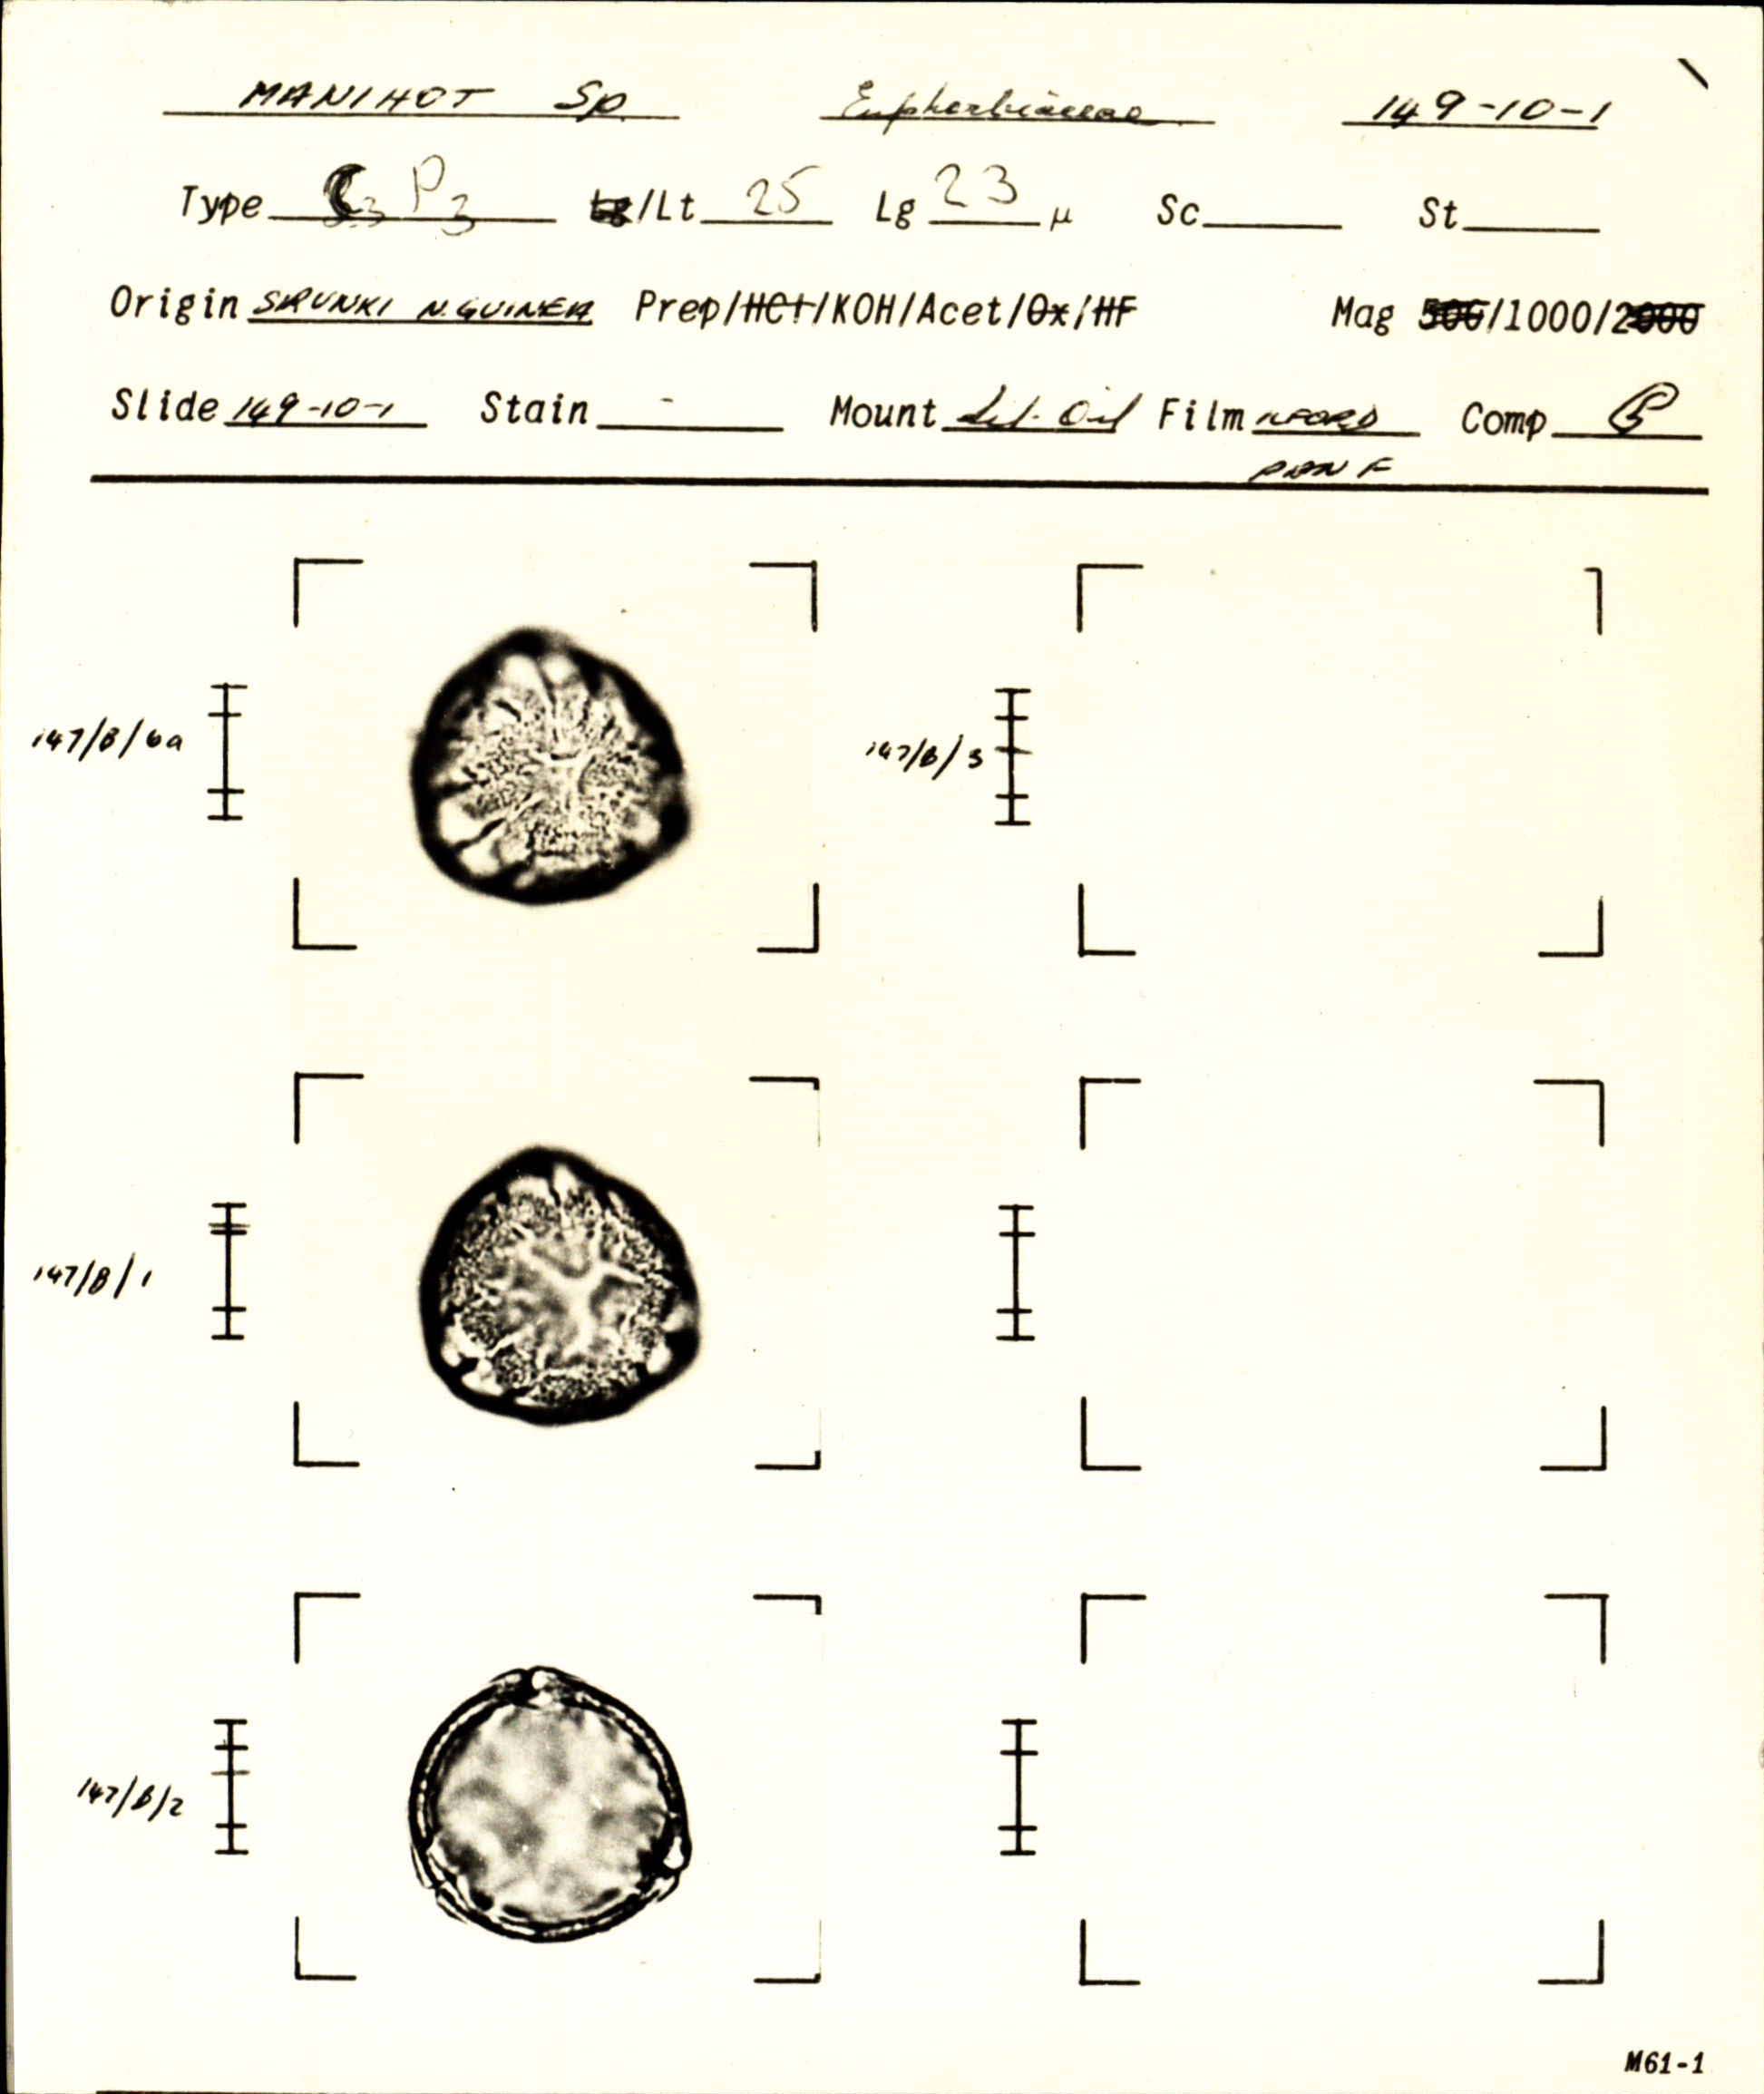 MANIHOT Sp. Euphorbiaceae 149-10-1
Type C3 P3 Lg/Lt 25 Lg 23 µ Sc St
Origin SIRUNKI N.GUINEA Prep/HCl/KOH/Acet/Ox/HF Mag 500/1000/2000
Slide 149-10-1 Stain - Mount Sil. Oil Film ILFORD Comp
PAN F
147/B/6a 147/B/3
147/B/1
147/B/2
M61-1